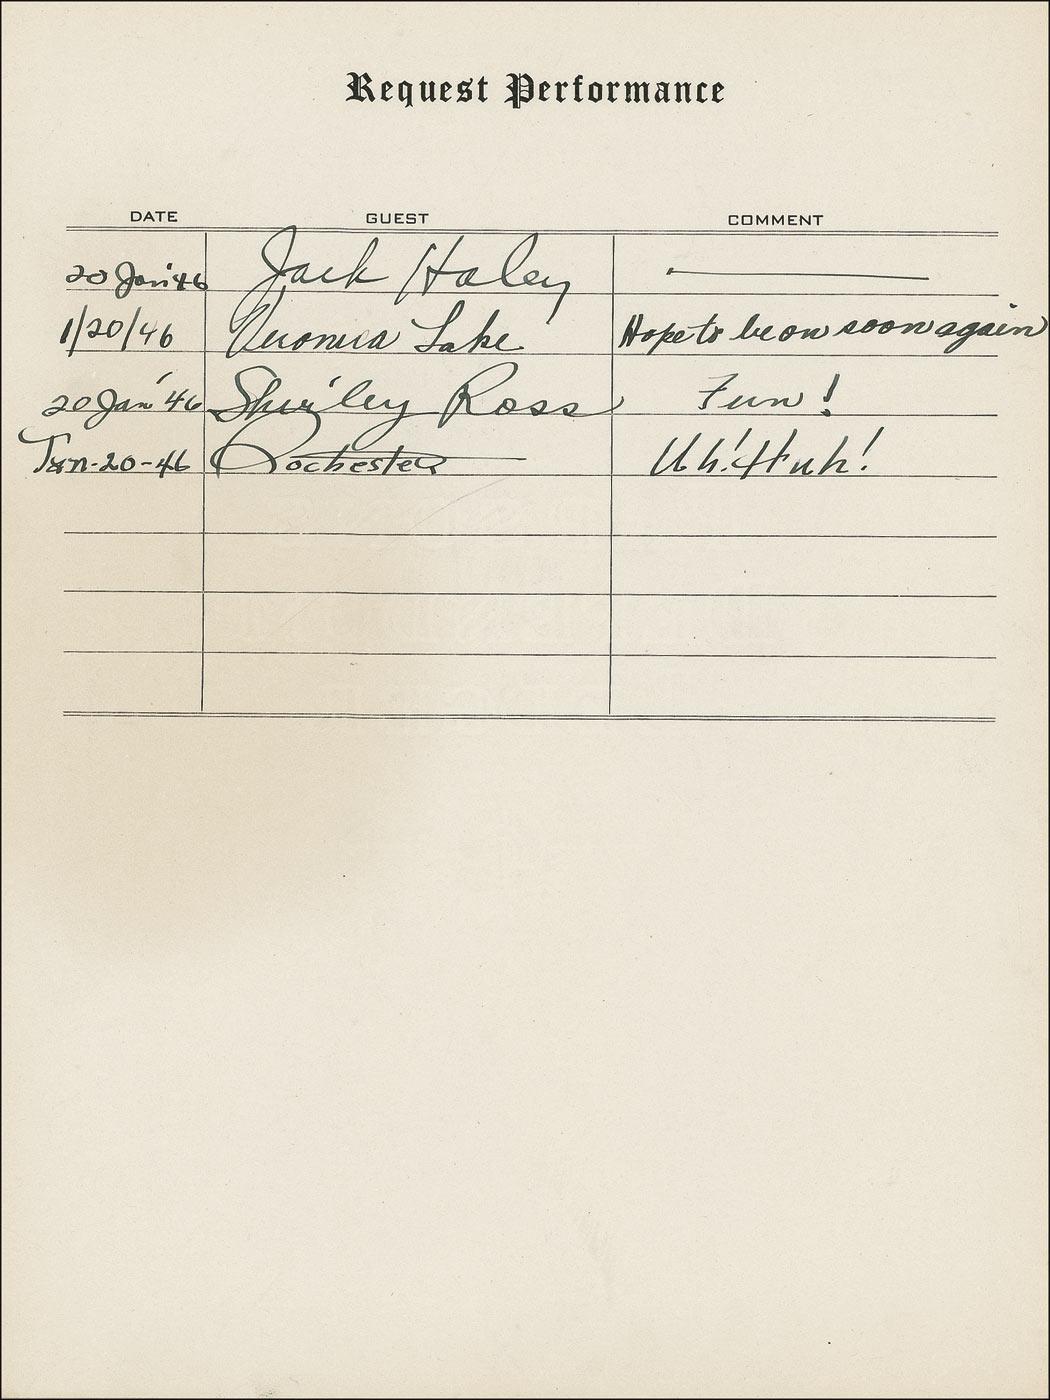 Request Performance
DATE GUEST COMMENT
20 Jan '46 Jack Haley —
1/20/46 Veronica Lake Hope to be on soon again
20 Jan '46 Shirley Ross Fun!
Jan-20-46 Rochester Uh! Huh!